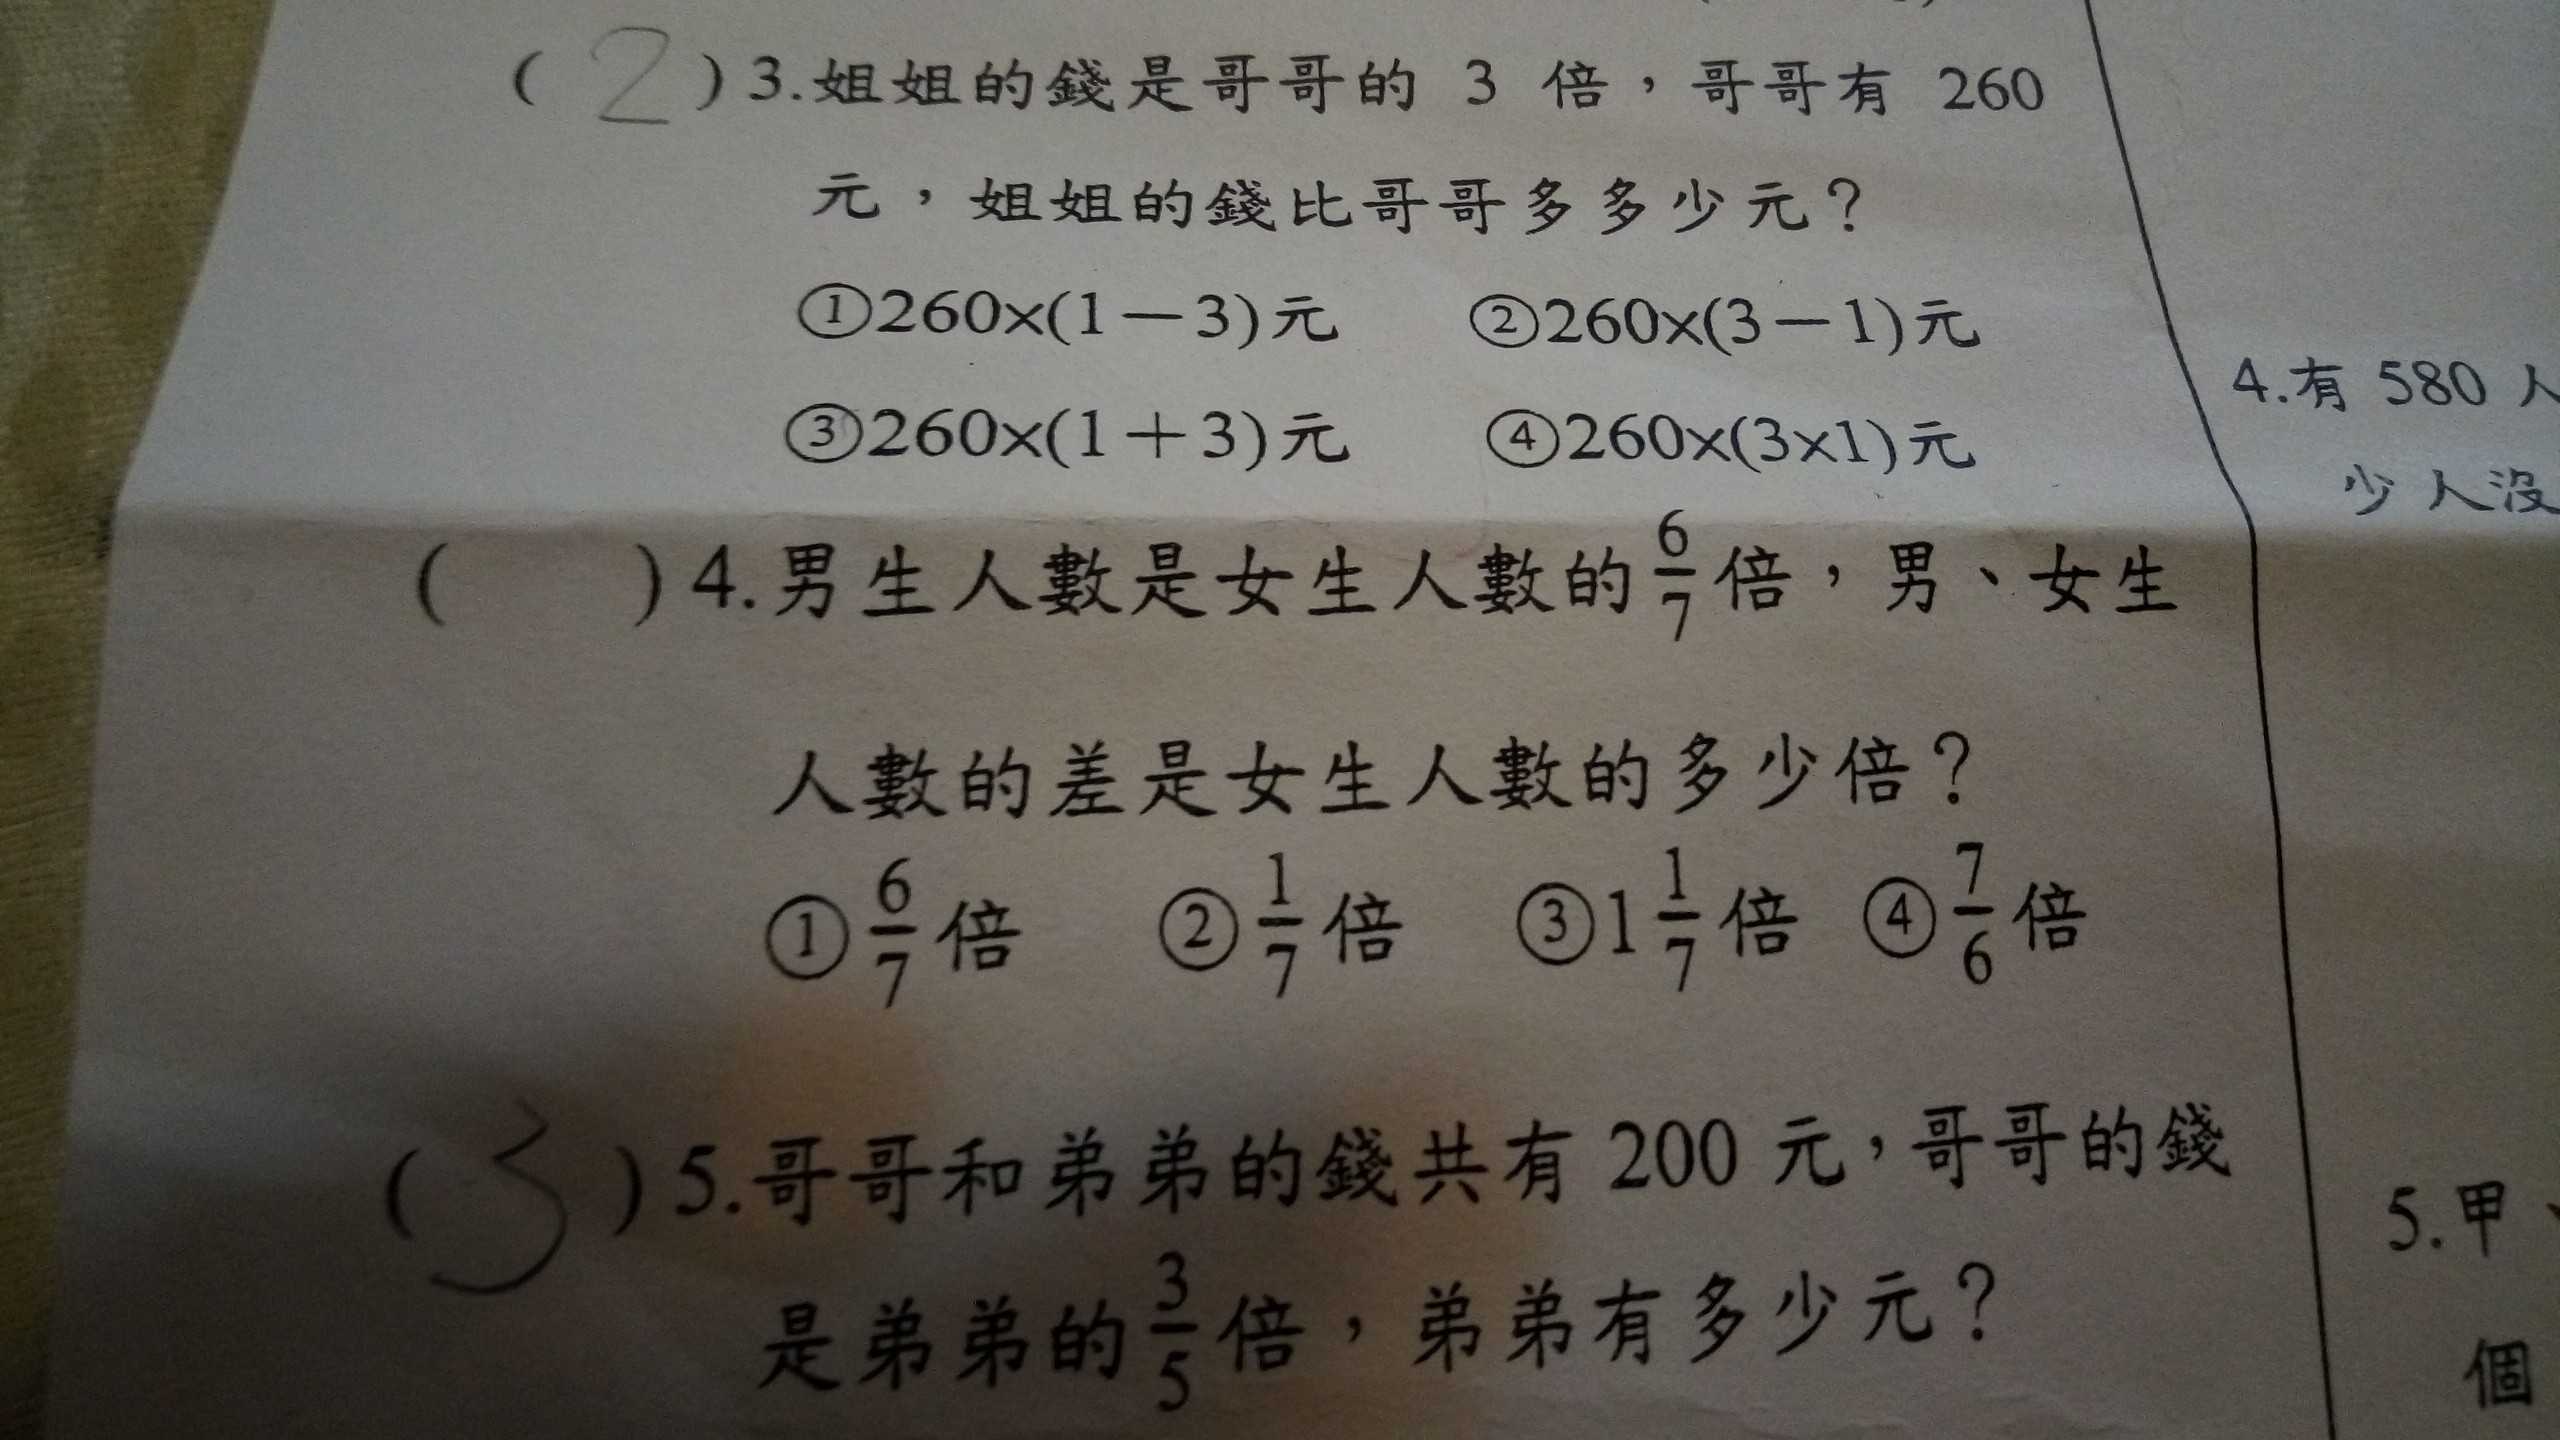 ( 2 ) 3.姐姐的錢是哥哥的 3 倍，哥哥有 260
元，姐姐的錢比哥哥多多少元？
①260×(1－3)元 ②260×(3－1)元
③260×(1＋3)元 ④260×(3×1)元
( ) 4.男生人數是女生人數的6/7倍，男、女生
人數的差是女生人數的多少倍？
①6/7倍 ②1/7倍 ③1 1/7倍 ④7/6倍
( 3 ) 5.哥哥和弟弟的錢共有 200 元，哥哥的錢
是弟弟的3/5倍，弟弟有多少元？
4.有 580 人
少人沒
5.甲、
個